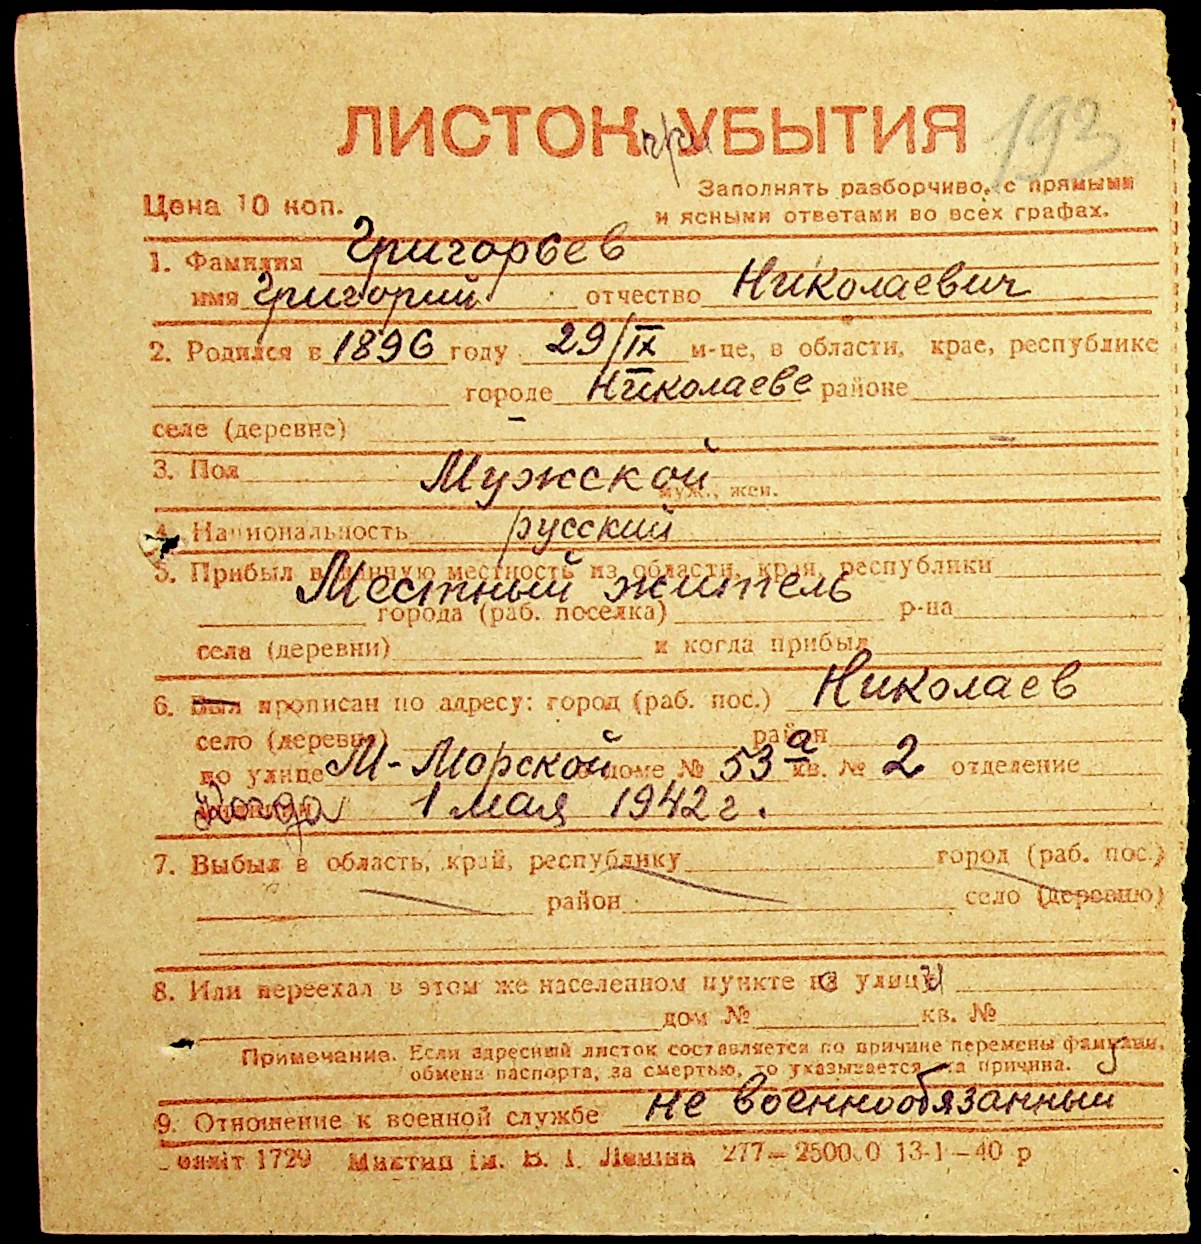 193
ЛИСТОК при УБЫТИЯ
Цена 10 коп.
Заполнять разборчиво, с прямыми
и ясными ответами во всех графах.
1. Фамилия Григорьев
имя Григорий отчество Николаевич
2. Родился в 1896 году 29/IX м-це, в области, крае, республике
городе Николаеве районе
селе (деревне) – –
3. Пол Мужской
муж., жен.
4. Национальность русский
5. Прибыл в данную местность из области, края, республики
Местный житель
города (раб. поселка) р-на
села (деревни) и когда прибыл
6. Был прописан по адресу: город (раб. пос.) Николаев
село (деревня) район
по улице М-Морской в доме № 53а кв. № 2 отделение
Когда 1 мая 1942 г.
7. Выбыл в область, край, республику город (раб. пос.)
район село (деревню)
8. Или переехал в этом же населенном пункте с улицы
дом № кв. №
Примечание. Если адресный листок составляется по причине перемены фамилии,
обмена паспорта, за смертью, то указывается эта причина.
9. Отношение к военной службе не военнообязанный
1729 ім. В. І. Леніна 277–25000 13-І–40 р